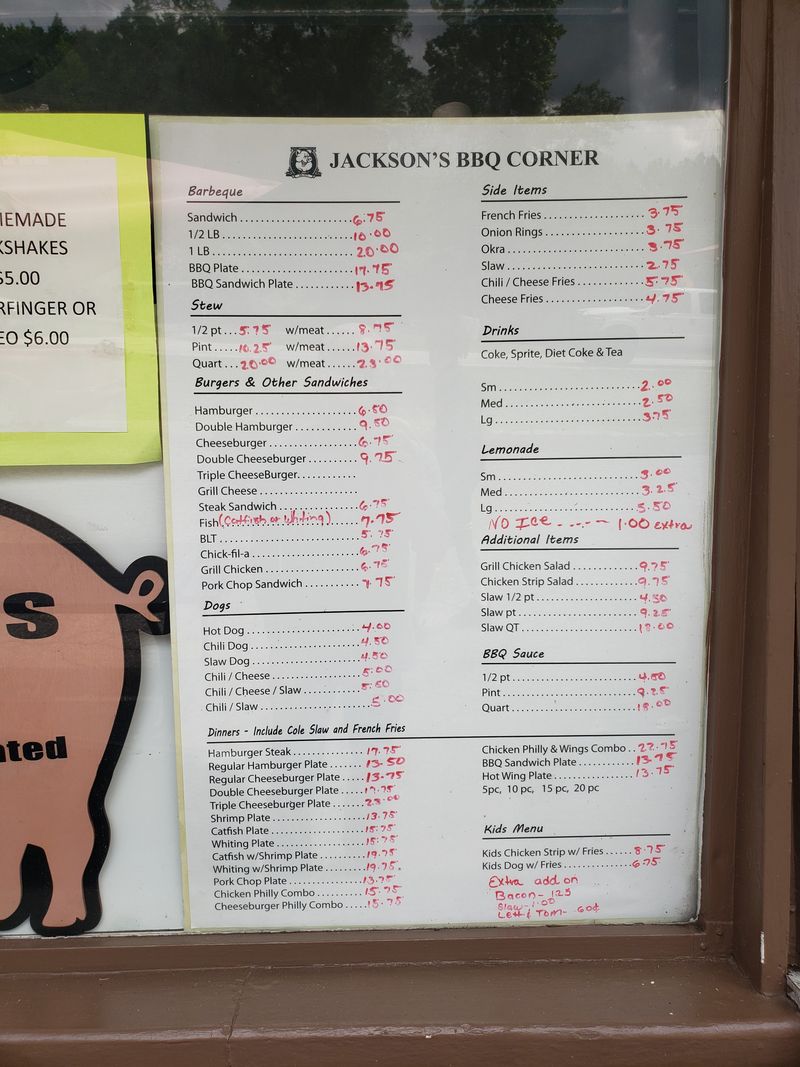 JACKSON'S BBQ CORNER
EMADE
KSHAKES
$5.00
RFINGER OR
EO $6.00
S
ated
Barbeque
Sandwich 6.75
1/2 LB 10.00
1 LB 20.00
BBQ Plate 17.75
BBQ Sandwich Plate 13.75
Stew
1/2 pt 5.75 w/meat 8.75
Pint 10.25 w/meat 13.75
Quart 20.00 w/meat 23.00
Burgers & Other Sandwiches
Hamburger 6.50
Double Hamburger 9.50
Cheeseburger 6.75
Double Cheeseburger 9.75
Triple CheeseBurger
Grill Cheese
Steak Sandwich 6.75
Fish (Catfish or Whiting) 7.75
BLT 5.75
Chick-fil-a 6.75
Grill Chicken 6.75
Pork Chop Sandwich 7.75
Dogs
Hot Dog 4.00
Chili Dog 4.50
Slaw Dog 4.50
Chili / Cheese 5.00
Chili / Cheese / Slaw 5.50
Chili / Slaw 5.00
Side Items
French Fries 3.75
Onion Rings 3.75
Okra 3.75
Slaw 2.75
Chili / Cheese Fries 5.75
Cheese Fries 4.75
Drinks
Coke, Sprite, Diet Coke & Tea
Sm 2.00
Med 2.50
Lg 3.75
Lemonade
Sm 3.00
Med 3.25
Lg 5.50
NO ICE ---- 1.00 extra
Additional Items
Grill Chicken Salad 9.75
Chicken Strip Salad 9.75
Slaw 1/2 pt 4.50
Slaw pt 9.25
Slaw QT 18.00
BBQ Sauce
1/2 pt 4.50
Pint 9.25
Quart 18.00
Dinners - Include Cole Slaw and French Fries
Hamburger Steak 17.75
Regular Hamburger Plate 13.50
Regular Cheeseburger Plate 13.75
Double Cheeseburger Plate 17.75
Triple Cheeseburger Plate 23.00
Shrimp Plate 13.75
Catfish Plate 15.75
Whiting Plate 15.75
Catfish w/Shrimp Plate 19.75
Whiting w/Shrimp Plate 19.75
Pork Chop Plate 13.75
Chicken Philly Combo 15.75
Cheeseburger Philly Combo 15.75
Chicken Philly & Wings Combo 22.75
BBQ Sandwich Plate 13.75
Hot Wing Plate 13.75
5pc, 10 pc, 15 pc, 20 pc
Kids Menu
Kids Chicken Strip w/ Fries 8.75
Kids Dog w/ Fries 6.75
Extra add on
Bacon - 1.25
Slaw - 1.00
Lett & Tom - 60¢